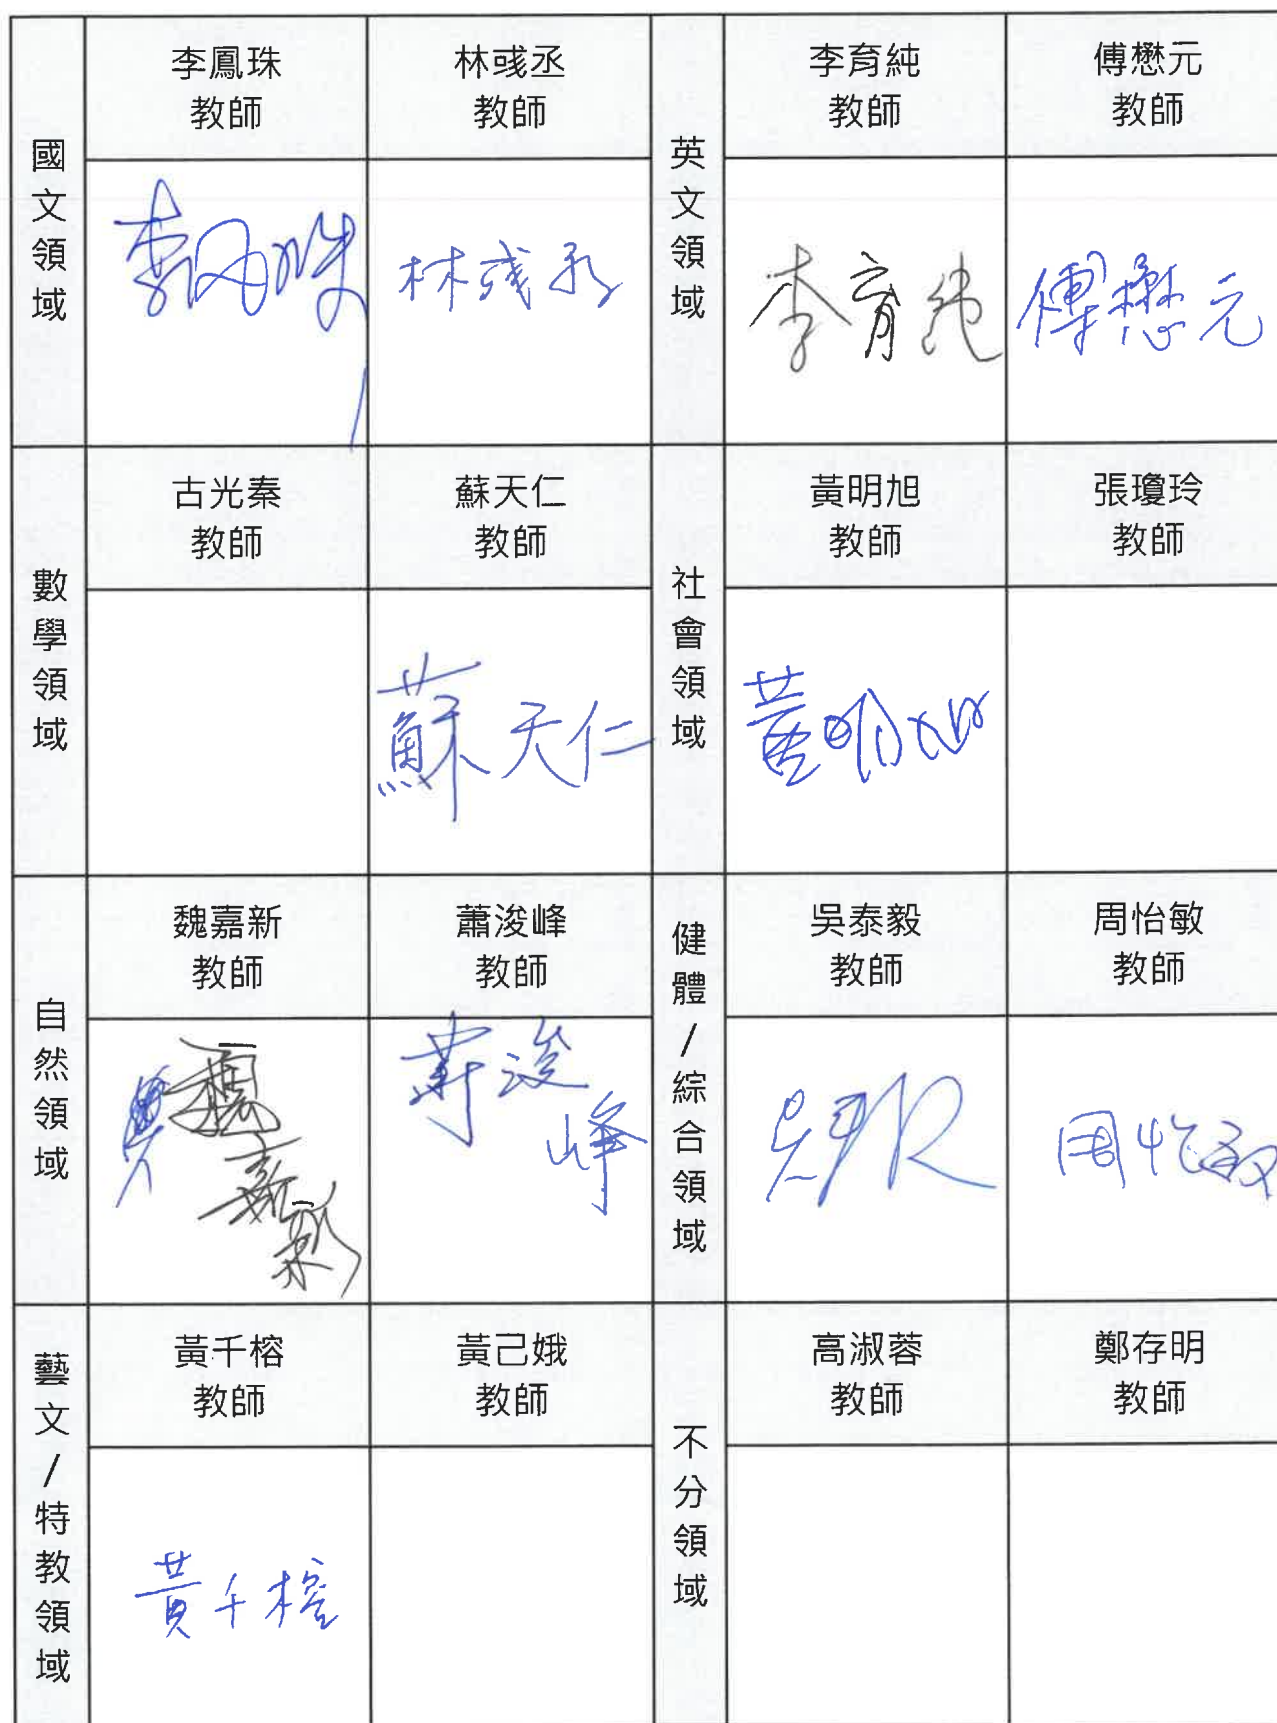 國文領域
李鳳珠
教師
林彧丞
教師
英文領域
李育純
教師
傅懋元
教師
李鳳珠
林彧丞
李育純
傅懋元
數學領域
古光秦
教師
蘇天仁
教師
社會領域
黃明旭
教師
張瓊玲
教師
蘇天仁
黃明旭
自然領域
魏嘉新
教師
蕭浚峰
教師
健體/綜合領域
吳泰毅
教師
周怡敏
教師
魏嘉新
浚
峰
周怡敏
藝文/特教領域
黃千榕
教師
黃己娥
教師
不分領域
高淑蓉
教師
鄭存明
教師
黃千榕